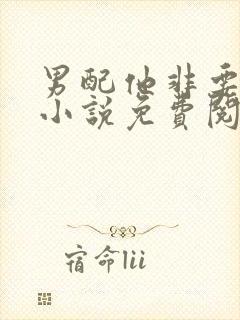 男配他非要
小說免費閱
宿命lii